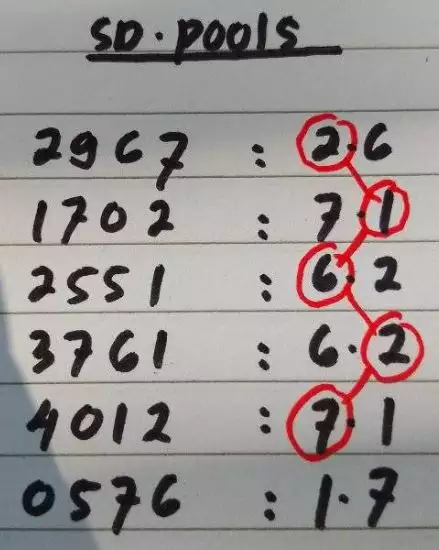 SD. POOLS
2967 : 2.6
1702 : 7.1
2551 : 6.2
3761 : 6.2
4012 : 7.1
0576 : 1.7